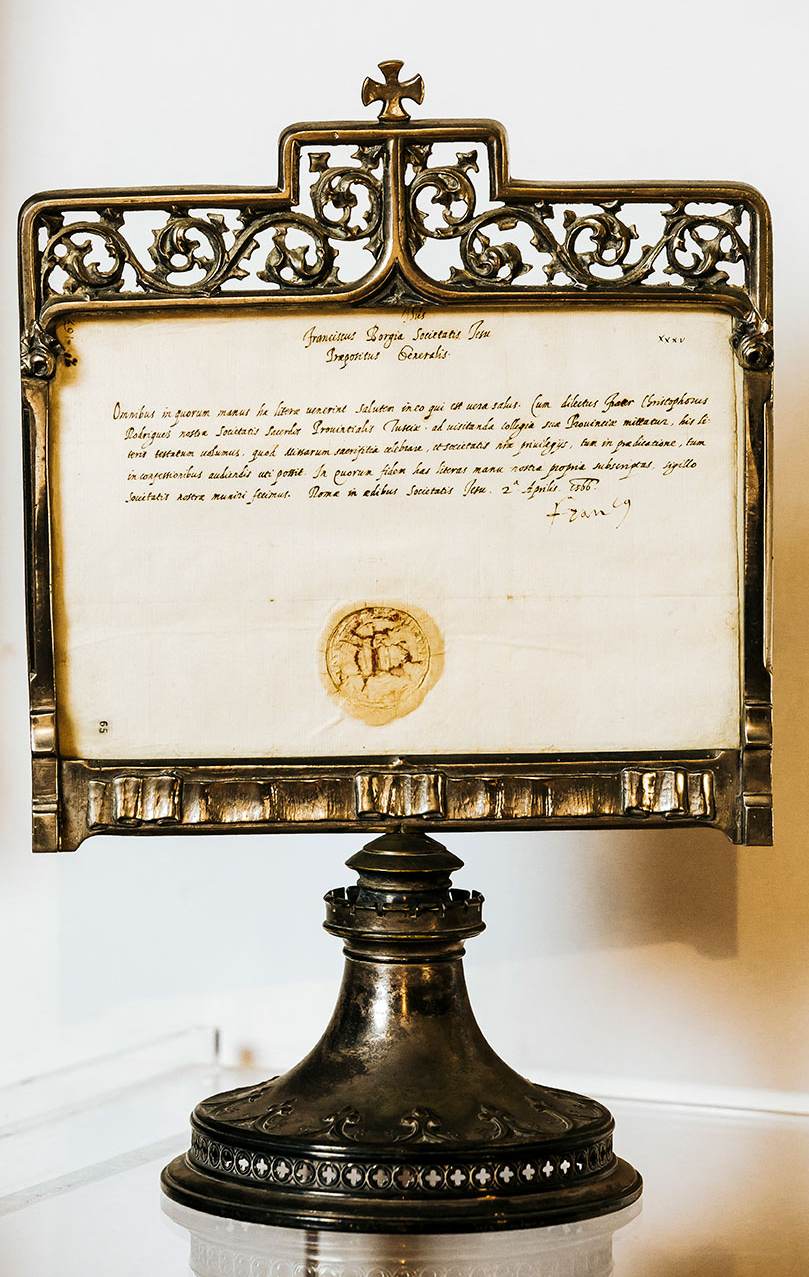 Jhus
Franciscus Borgia Societatis Jesu
xxxv
Præpositus Generalis.
Omnibus in quorum manus hæ literæ venerint salutem in eo qui est vera salus. Cum dilectus frater Christophorus
Rodrigues nostræ Societatis Sacerdos Provintialis Tusciæ ad visitanda collegia suæ Provinciæ mittatur, his li-
teris testatum volumus, quod Missarum sacrifitia celebrare, et societatis nræ privilegijs, tum in prædicatione, tum
in confessionibus audiendis uti possit. In quorum fidem has literas manu nostra propria subscriptas, sigillo
Societatis nostræ muniri fecimus. Romæ in ædibus Societatis Jesu. 2ª Aprilis. 1566.
Franco
65